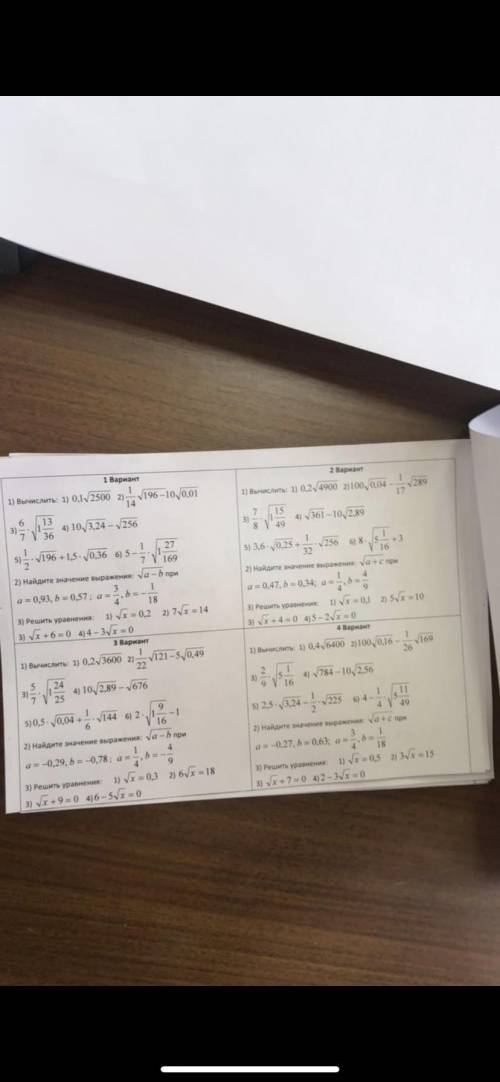 1 Вариант
1) Вычислить: 1) 0,1√2500 2) 1/14 √196 − 10√0,01
3) 6/7 · √(1 13/36) 4) 10√3,24 − √256
5) 1/2 · √196 + 1,5 · √0,36 6) 5 − 1/7 · √(1 27/169)
2) Найдите значение выражения: √a − b при
a = 0,93, b = 0,57; a = 3/4, b = − 1/18
3) Решить уравнения: 1) √x = 0,2 2) 7√x = 14
3) √x + 6 = 0 4) 4 − 3√x = 0
2 Вариант
1) Вычислить: 1) 0,2√4900 2) 100√0,04 − 1/17 √289
3) 7/8 · √(1 15/49) 4) √361 − 10√2,89
5) 3,6 · √0,25 + 1/32 · √256 6) 8 · √(5 1/16) + 3
2) Найдите значение выражения: √a + c при
a = 0,47, b = 0,34; a = 1/4, b = 4/9
3) Решить уравнения: 1) √x = 0,1 2) 5√x = 10
3) √x + 4 = 0 4) 5 − 2√x = 0
3 Вариант
1) Вычислить: 1) 0,2√3600 2) 1/22 √121 − 5√0,49
3) 5/7 · √(1 24/25) 4) 10√2,89 − √676
5) 0,5 · √0,04 + 1/6 · √144 6) 2 · √(1 9/16) − 1
2) Найдите значение выражения: √a − b при
a = −0,29, b = −0,78; a = 1/4, b = − 4/9
3) Решить уравнения: 1) √x = 0,3 2) 6√x = 18
3) √x + 9 = 0 4) 6 − 5√x = 0
4 Вариант
1) Вычислить: 1) 0,4√6400 2) 100√0,16 − 1/26 √169
3) 2/9 · √(5 1/16) 4) √784 − 10√2,56
5) 2,5 · √3,24 − 1/2 · √225 6) 4 − 1/4 √(5 11/49)
2) Найдите значение выражения: √a + c при
a = −0,27, b = 0,63; a = 3/4, b = 1/18
3) Решить уравнения: 1) √x = 0,5 2) 3√x = 15
3) √x + 7 = 0 4) 2 − 3√x = 0